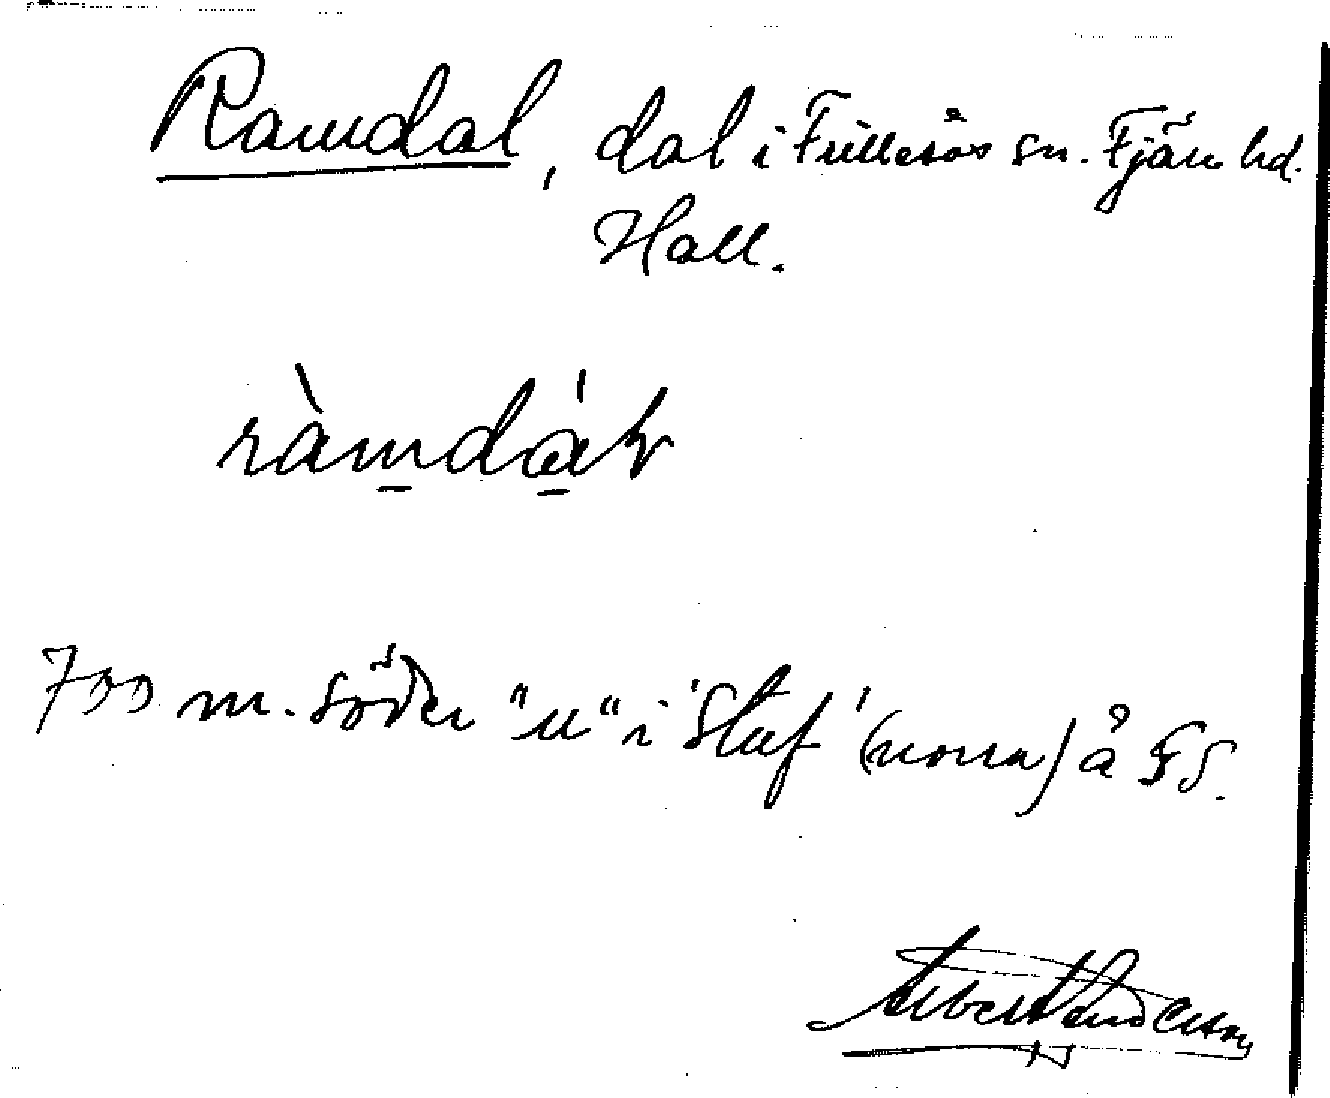 Ramdal, dal i Fillesås sn. Fjäre hd.
Hall.
ràmdál
700 m. söder "u" i 'Stuf' (norra) å FS.
Albert Anderson